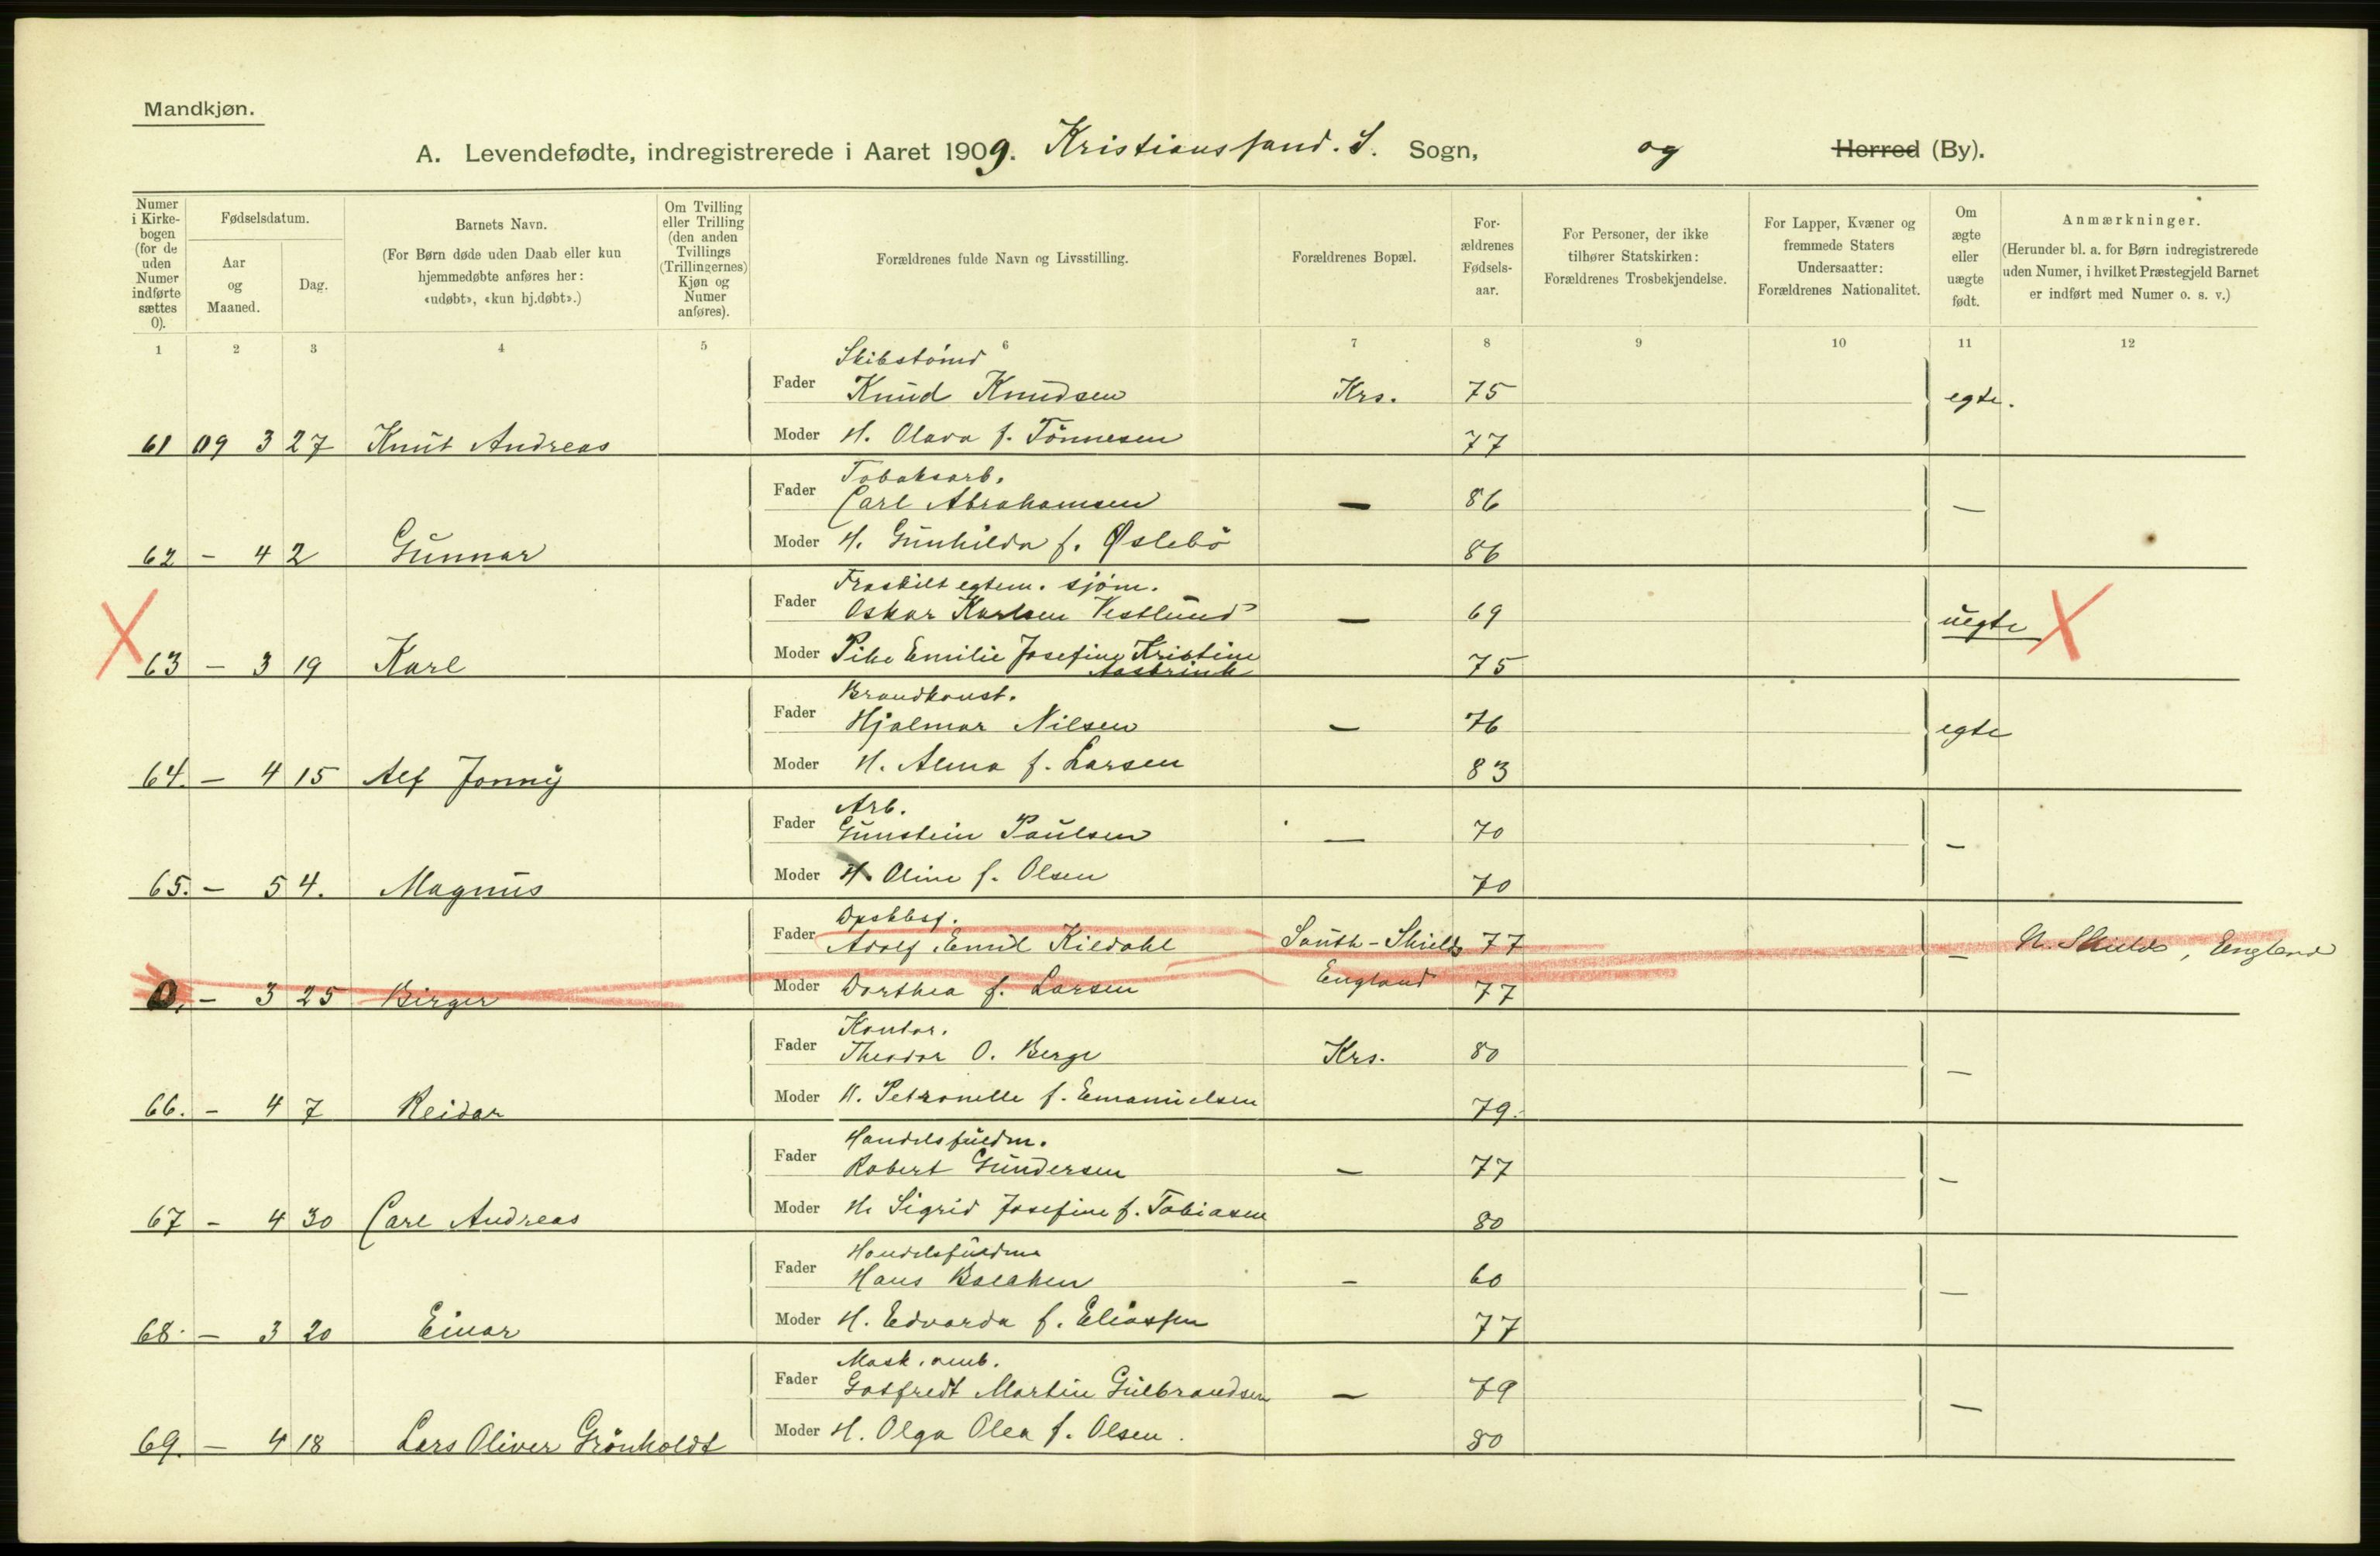 Mandkjøn.
A. Levendefødte, indregistrerede i Aaret 1909. Kristianssand. S. Sogn, og Herred (By).
Numer i Kirkebogen (for de uden Numer indførte sættes 0).
Fødselsdatum.
Aar og Maaned.
Dag.
Barnets Navn.
(For Børn døde uden Daab eller kun hjemmedøbte anføres her: «udøbt», «kun hj.døbt».)
Om Tvilling eller Trilling (den anden Tvillings (Trillingernes) Kjøn og Numer anføres).
Forældrenes fulde Navn og Livsstilling.
Forældrenes Bopæl.
Forældrenes Fødselsaar.
For Personer, der ikke tilhører Statskirken: Forældrenes Trosbekjendelse.
For Lapper, Kvæner og fremmede Staters Undersaatter: Forældrenes Nationalitet.
Om ægte eller uægte født.
Anmærkninger.
(Herunder bl. a. for Børn indregistrerede uden Numer, i hvilket Præstegjeld Barnet er indført med Numer o. s. v.)
1 2 3 4 5 6 7 8 9 10 11 12
Skibstømd
Fader Knud Knudsen Krs. 75 egte.
61 09 3 27 Knut Andreas Moder H. Olava f. Tönnesen 77
Tobaksarb.
Fader Carl Abrahamsen — 86 —
62 - 4 2 Gunnar Moder H. Gunhilda f. Øslebö 86
Fraskilt egtem. sjöm.
Fader Oskar Karlsen Vestlund — 69 uegte
63 - 3 19 Karl Moder Pike Emilie Josefine Kristine 75
Aasbrink
Brandkonst.
Fader Hjalmar Nilsen — 76 egte
64. - 4 15 Alf Jonny Moder H. Alma f. Larsen 83
Arb.
Fader Gunstein Paulsen — 70 —
65. - 5 4. Magnus Moder H. Oline f. Olsen 70
Fader Adolf Emil Kildahl South-Shields 77 — N. Shields, England
0. - 3 25 Birger Moder Dorthea f. Larsen England 77
Kontor.
Fader Theodor O. Berge Krs. 80 —
66. - 4 7 Reidar Moder H. Petronelle f. Emanuelsen 79.
Handelsfuldm.
Fader Robert Gundersen — 77 —
67 - 4 30 Carl Andreas Moder H. Sigrid Josefine f. Tobiasen 80
Handelsfuldm
Fader Hans — 60 —
68. - 3 20 Einar Moder H. Edvarda f. Eliassen 77
Fader Gotfredt Martin Gulbrandsen — 79 —
69. - 4 18 Lars Oliver Grönholdt Moder H. Olga Olea f. Olsen. 80